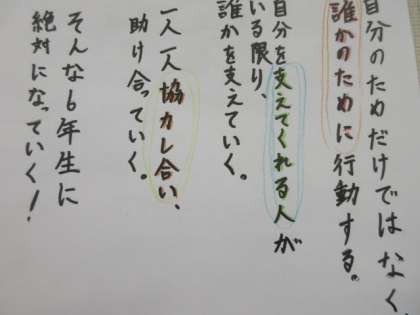 自分のためだけではなく、
誰かのために行動する。
自分を支えてくれる人が
いる限り、
誰かを支えていく。
一人一人協力し合い、
助け合っていく。
そんな6年生に
絶対になっていく!